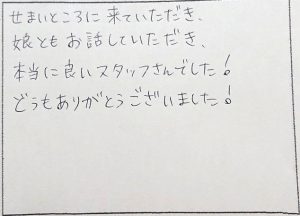 せまいところに来ていただき、
娘ともお話していただき、
本当に良いスタッフさんでした!
どうもありがとうございました!